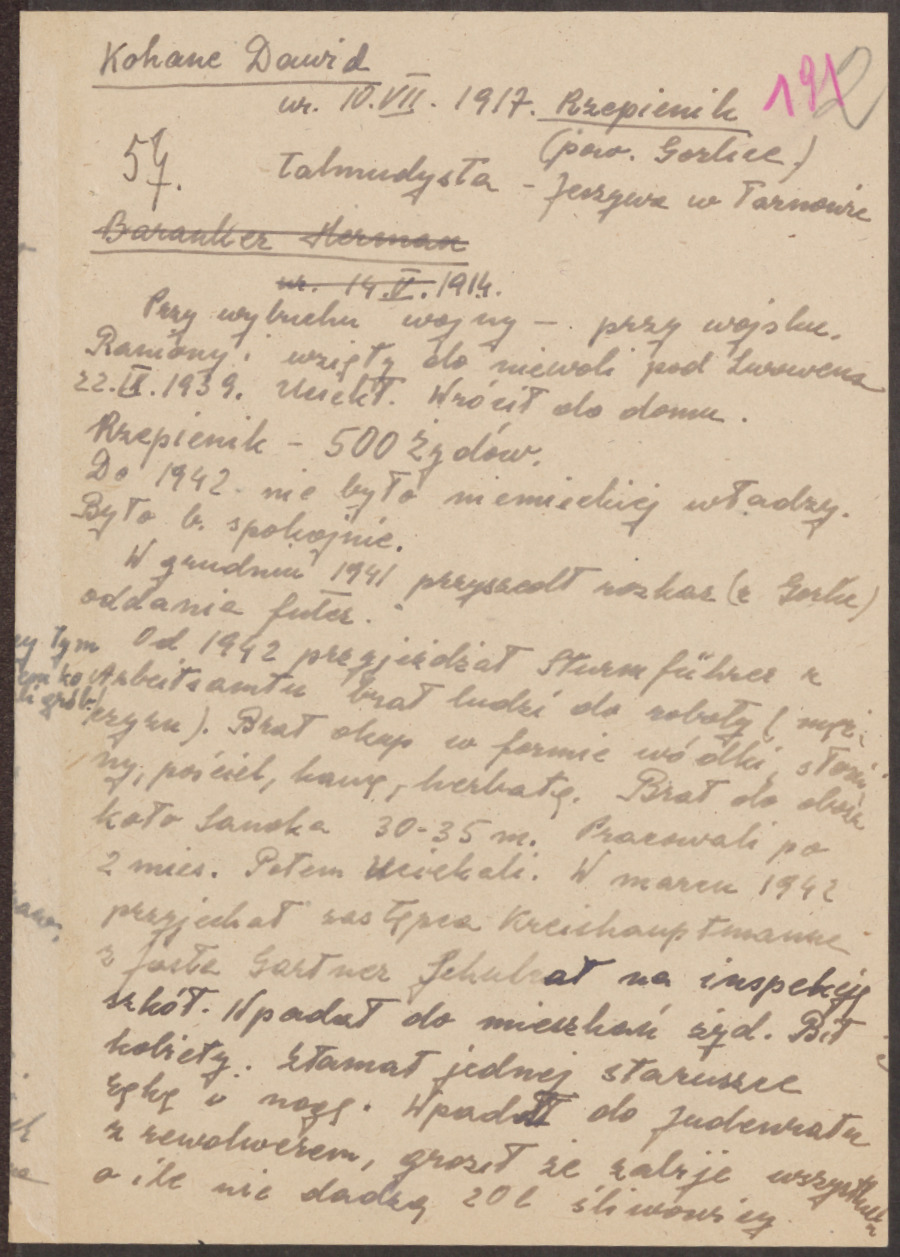 Kohane Dawid
191 2
ur. 10.VII. 1917. Rzepienik
(pow. Gorlice)
57.
talmudysta - Jeszywa w Tarnowie
Baranker Herman
ur. 14.V.1914.
Przy wybuchu wojny - przy wojsku.
Raniony i wzięty do niewoli pod Lwowem
22.IX.1939. Uciekł. Wrócił do domu.
Rzepienik - 500 Żydów.
Do 1942 nie było niemieckiej władzy.
Było b. spokojnie.
W grudniu 1941 przyszedł rozkaz (z Gorlic)
oddania futer.
Od 1942 przyjeżdżał Sturmführer z
Arbeitsamtu brał ludzi do roboty (męż-
czyzn). Brał okup w formie wódki, słoni-
ny, pościel, kawę, herbatę. Brał do obozu
koło Sanoka 30-35 m. Pracowali po
2 mies. Potem uciekali. W marcu 1942
przyjechał zastępca Kreishauptmanna
z Jasła Gartner na inspekcję
szkół. Wpadał do mieszkań żyd. Bił
kobiety. Złamał jednej staruszce
rękę i nogę. Wpadł do Judenratu
z rewolwerem, groził że zabije wszystkich
o ile nie dadzą 20 l śliwowicy